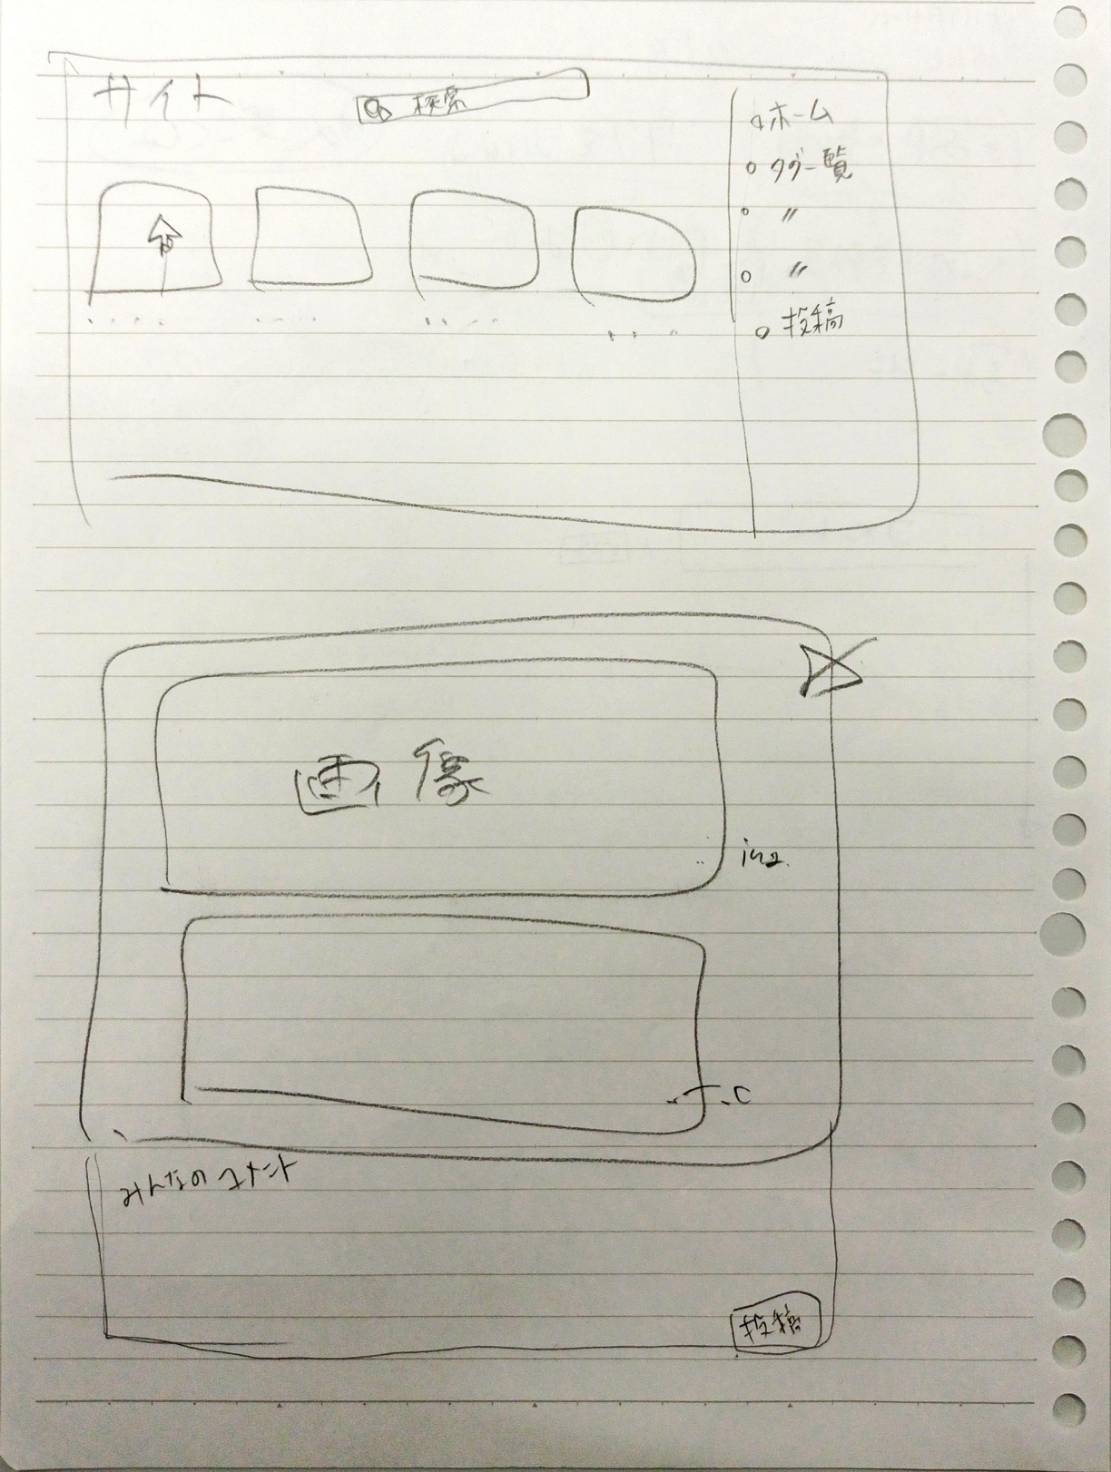 サイト
検索
ホーム
タグ一覧
〃
〃
投稿
画像
みんなのコメント
投稿